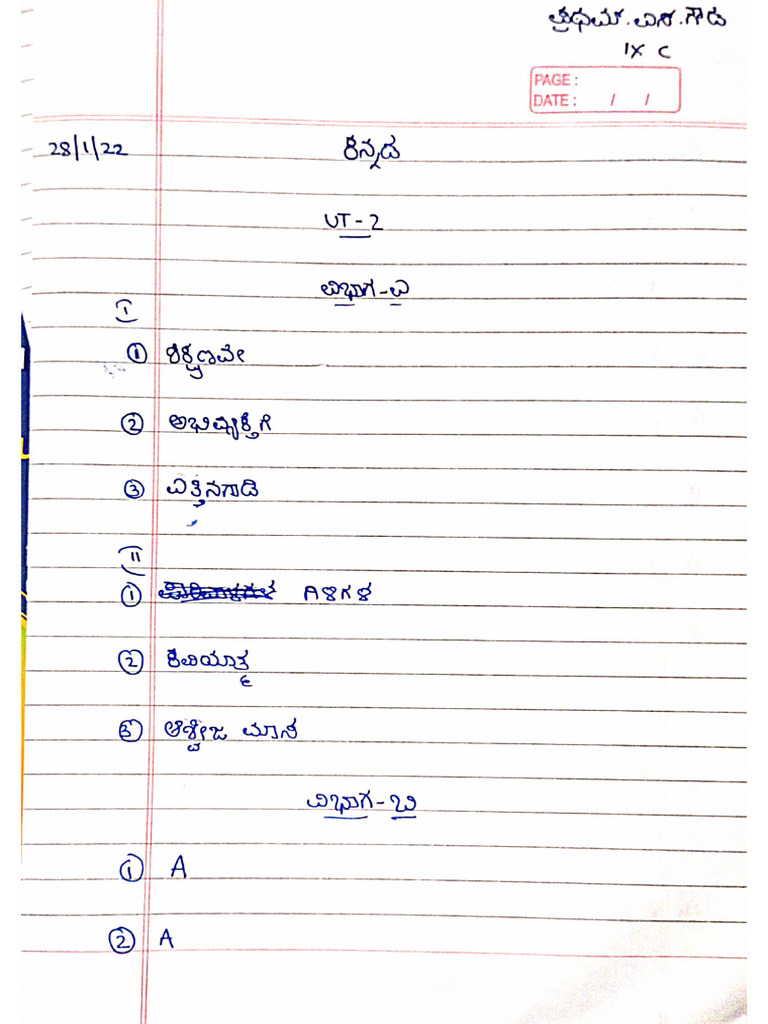 ಪ್ರಥಮ್.ಎಸ.ಗೌಡ
IX C
PAGE:
DATE: / /
28/1/22 ಕನ್ನಡ
UT-2
ವಿಭಾಗ-ಎ
I
① ಶಿಕ್ಷಣವೇ
② ಅಭಿವ್ಯಕ್ತಿಗೆ
③ ಎತ್ತಿನಗಾಡಿ
II
① ಗಿಳಿಗಳ
② ಕವಿಯಾತ್ರೆ
③ ಆಶ್ವೀಜ ಮಾಸ
ವಿಭಾಗ-ಬಿ
① A
② A